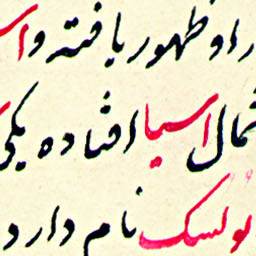 راه ظهور یافته و اس
شمال اسیا افتاده یکی
لسک نام دارد